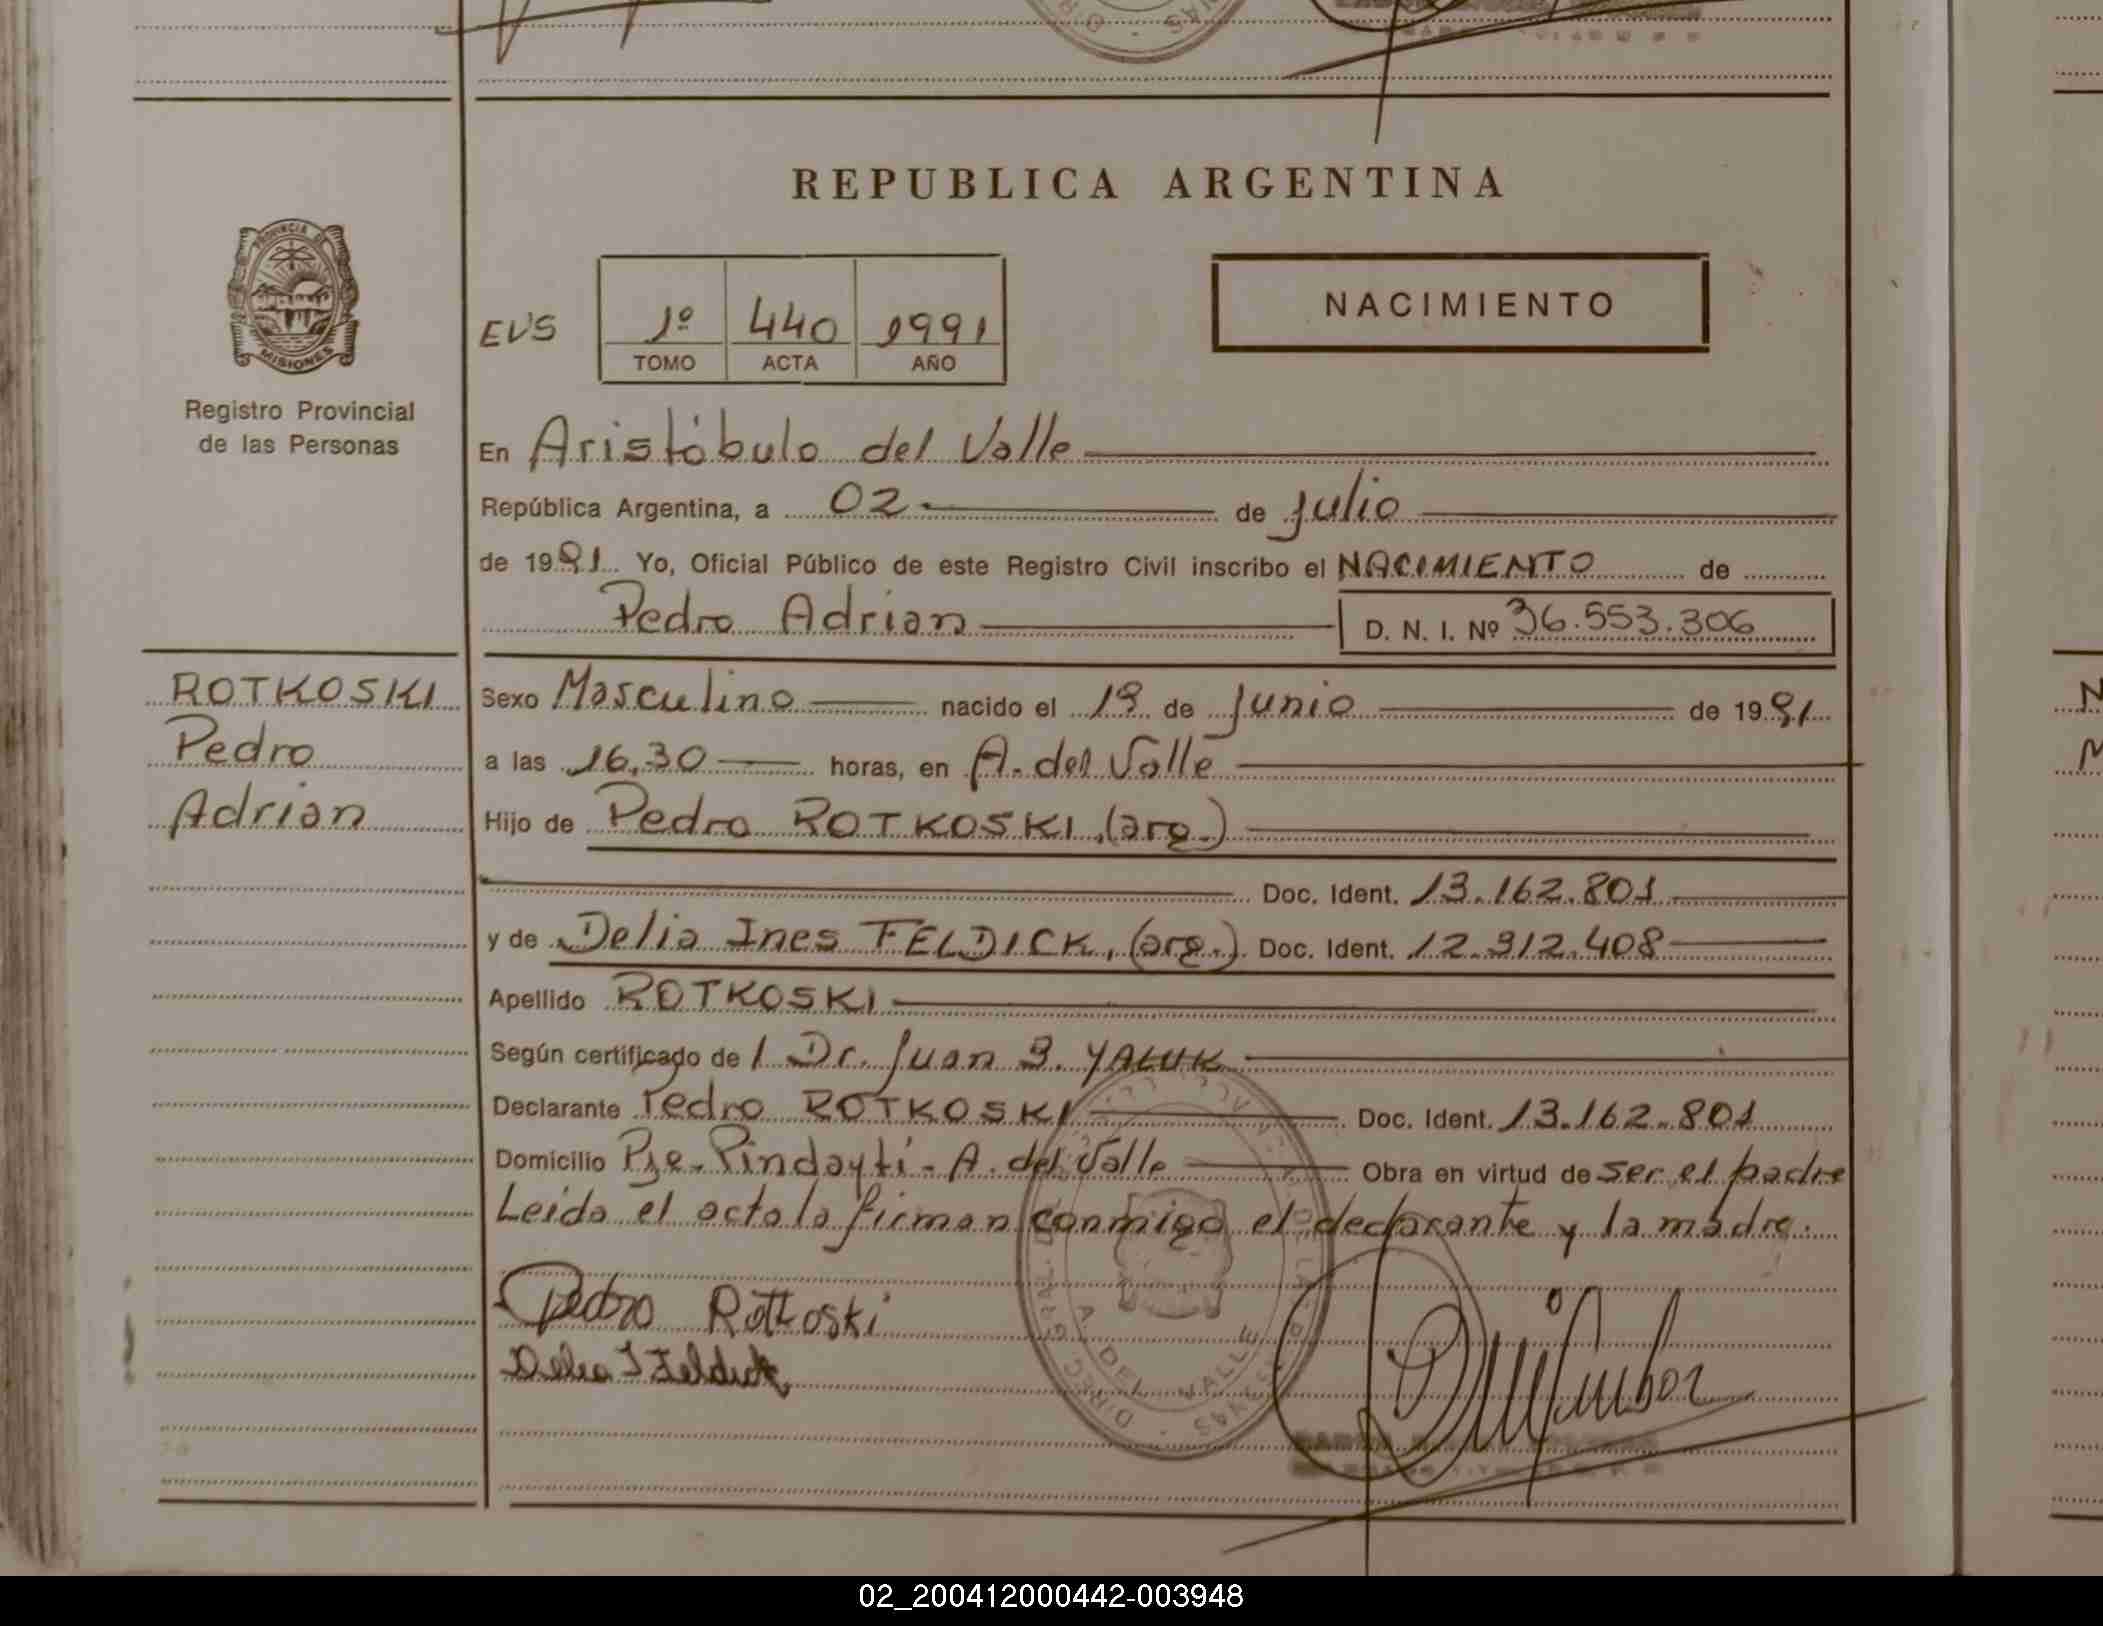 REPUBLICA ARGENTINA
PROVINCIA DE
MISIONES
Registro Provincial
de las Personas
EVS
1º 440 1991
TOMO ACTA AÑO
NACIMIENTO
En Aristóbulo del Valle
República Argentina, a 02 de julio
de 1991 Yo, Oficial Público de este Registro Civil inscribo el NACIMIENTO de
Pedro Adrian D. N. I. Nº 36.553.306
ROTKOSKI
Pedro
Adrian
Sexo Masculino nacido el 19 de Junio de 1991
a las 16,30 horas, en A. del Valle
Hijo de Pedro ROTKOSKI, (arg.)
Doc. Ident. 13.162.801
y de Delia Ines FELDICK, (arg.) Doc. Ident. 12.912.408
Apellido ROTKOSKI
Según certificado de l Dr. Juan B. YALUK
Declarante Pedro ROTKOSKI Doc. Ident. 13.162.801
Domicilio Pje. Pindayti - A. del Valle Obra en virtud de ser el padre
Leida el acta la firman conmigo el declarante y la madre.
Pedro Rotkoski
Delia I Feldick
A. DEL VALLE
02_200412000442-003948